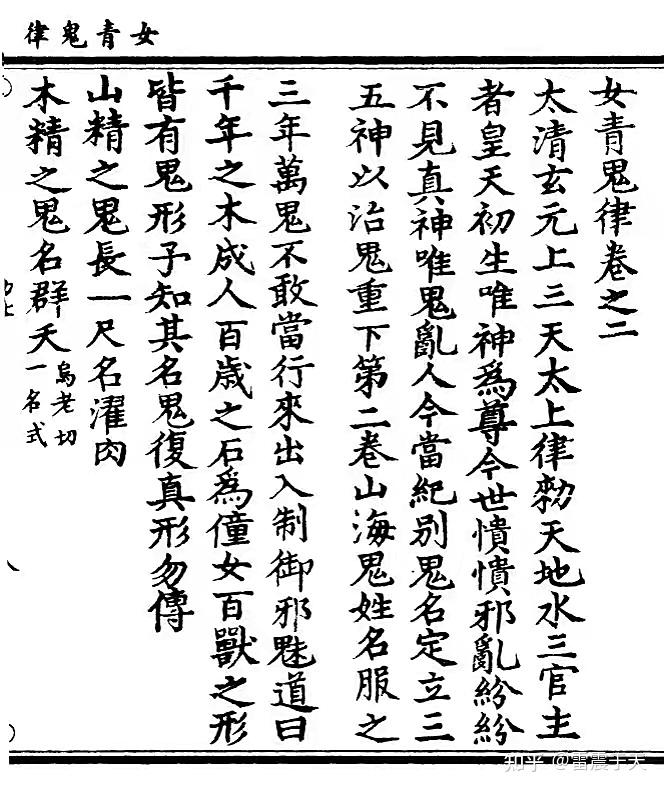 女青鬼律
女青鬼律卷之二
太清玄元上三天太上律勑天地水三官主
者皇天初生唯神爲尊今世憒憒邪亂紛紛
不見真神唯鬼亂人今當紀別鬼名定立三
五神以治鬼重下第二卷山海鬼姓名服之
三年萬鬼不敢當行來出入制御邪魅道曰
千年之木成人百歲之石爲僮女百獸之形
皆有鬼形予知其名鬼復真形勿傳
山精之鬼長一尺名濯肉
木精之鬼名群夭烏老切一名式
知乎 @雷震于天